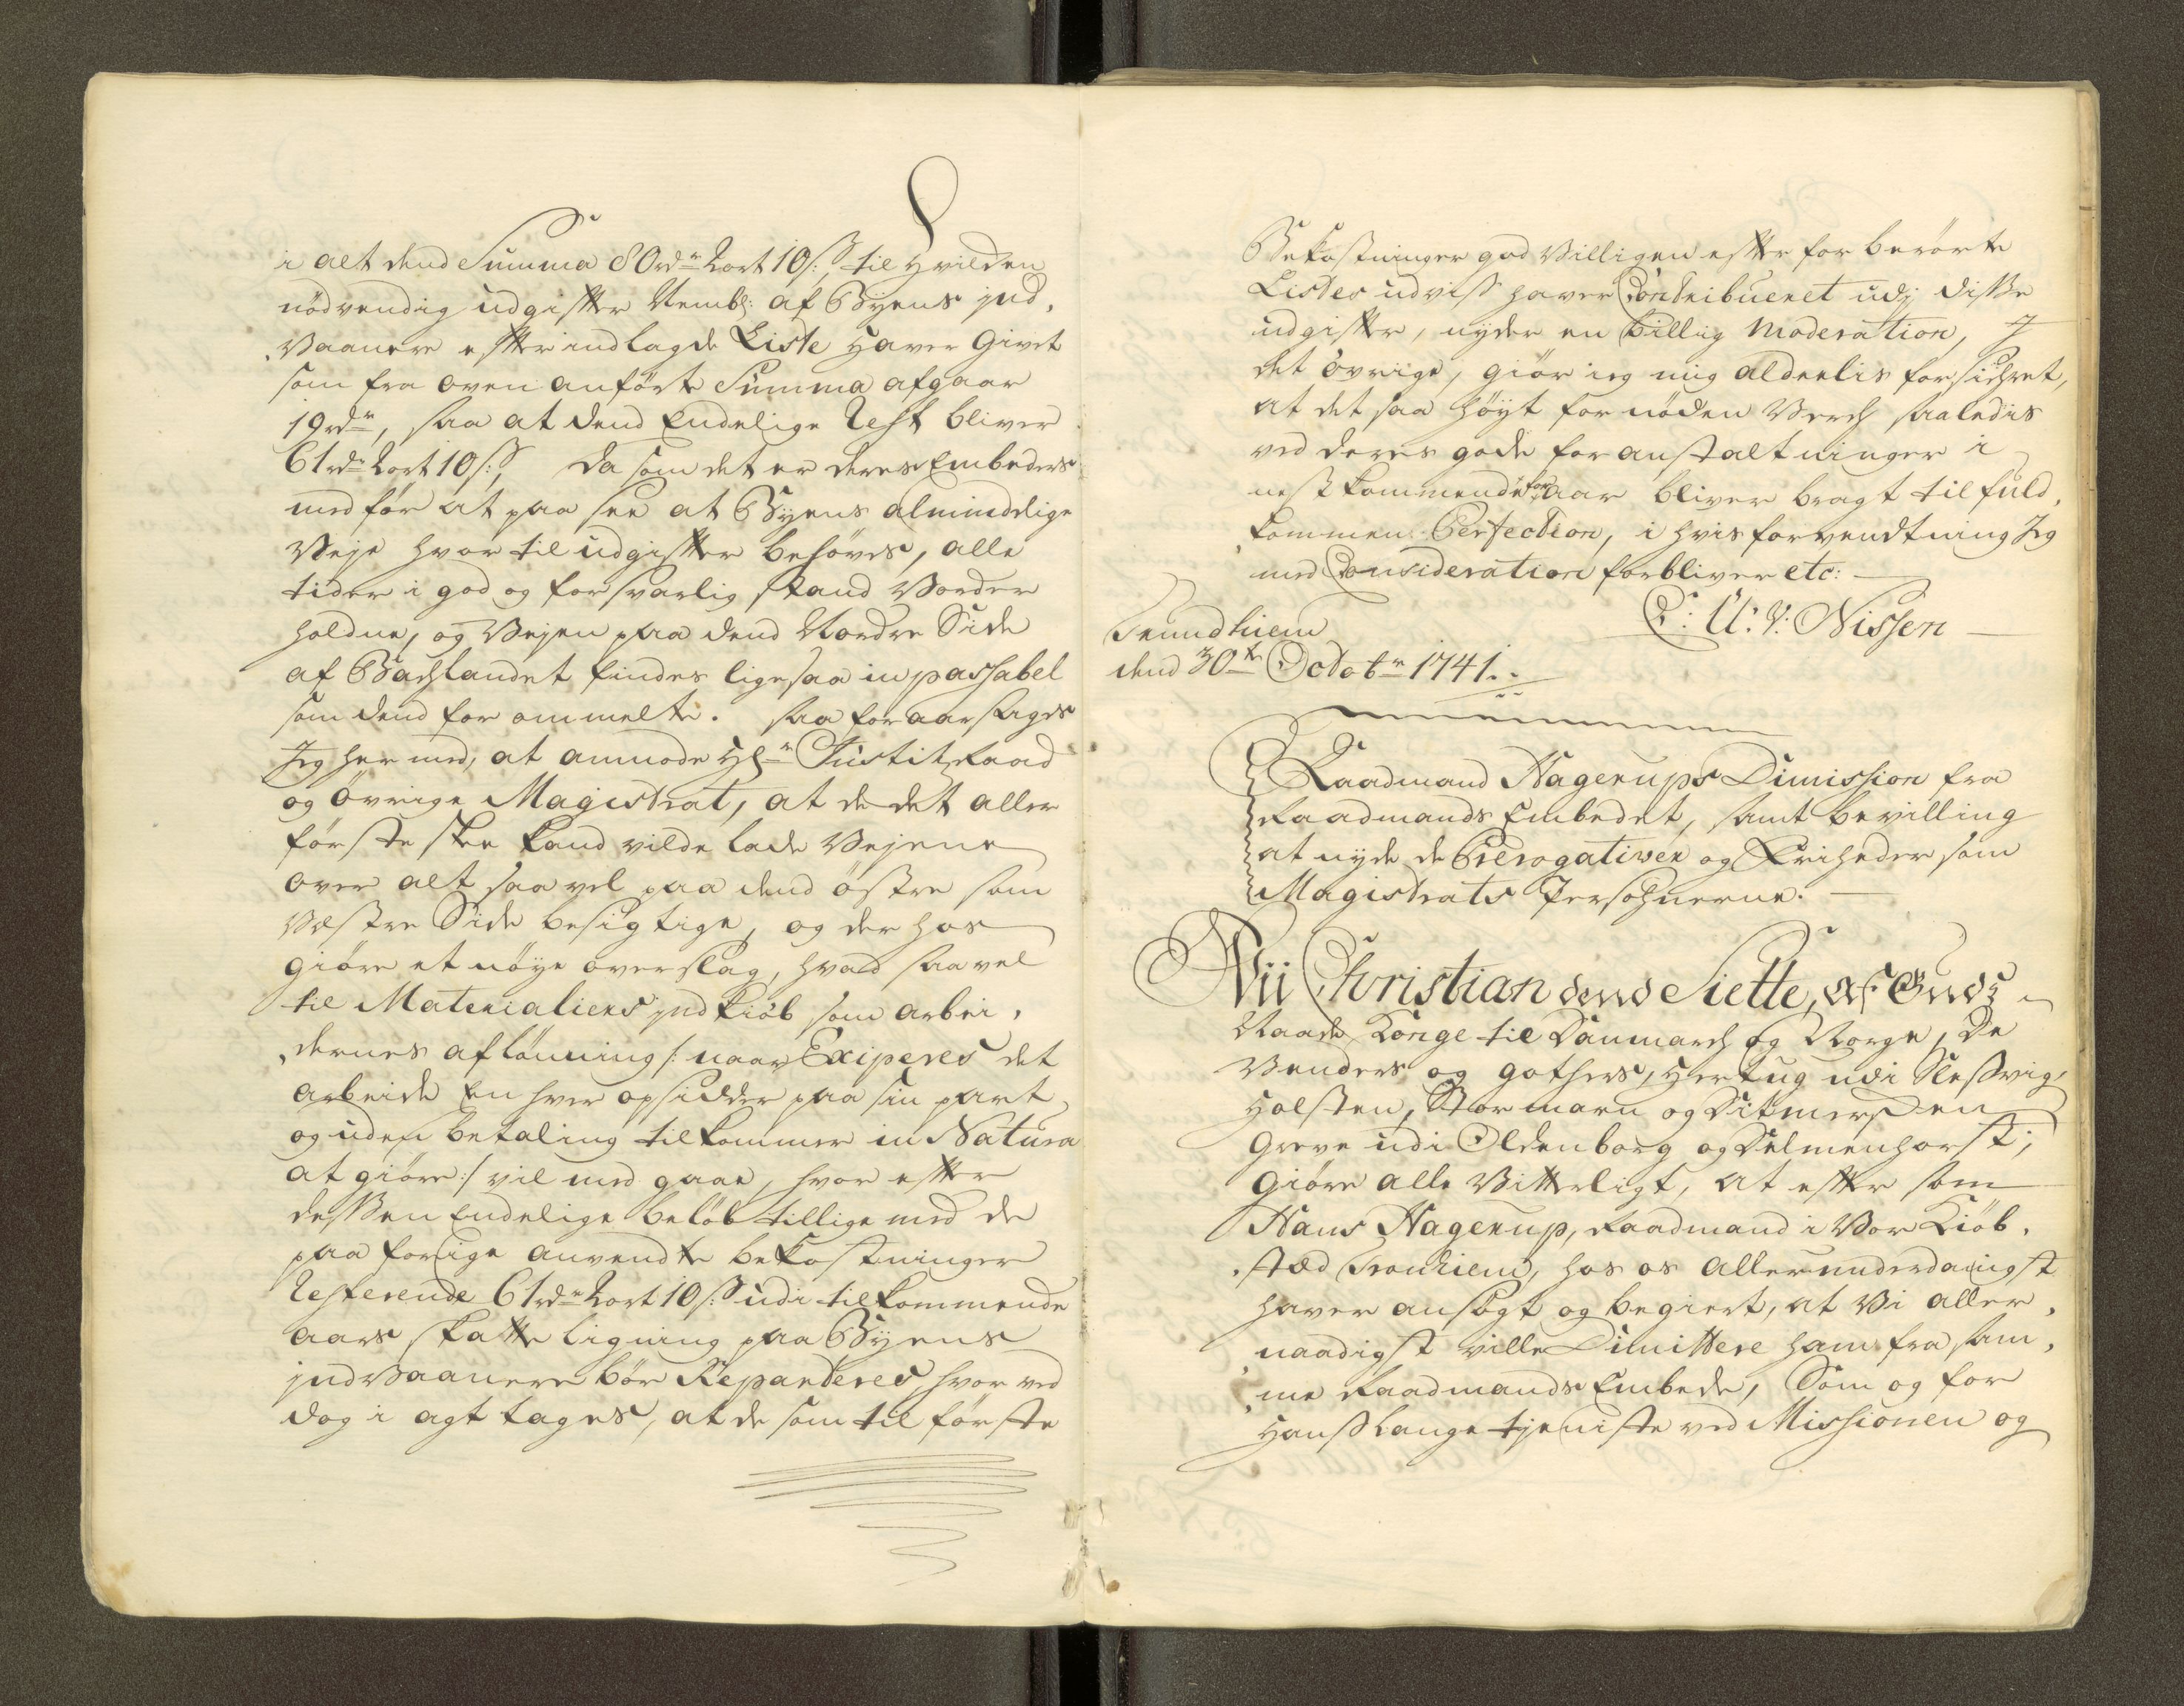 i alt dend Summa 80 rdr 2 ort 10 ß, til hvilcken
nödvendig udgifter Nembl: af Byens ind,
,vaanere efter indlagde Liste haver Givet
som fra oven anförte Summa afgaar
19 rdr, saa at dend Endelige Rest bliver
61 rdr 2 ort 10 ß, Da som det er deres Embeders
medför at paa see at Byens almindelige
Veje hvor til udgifter behöves, alle
tider i god og forsvarlig stand Vorder
holdne, og Vejen paa dend Nordre Side
af Bachlandet findes ligesaa inpassabel
som dend for ommelte. saa foraarsages
Jeg her med, at anmode Hr Justitzraad
og Övrige Magistrat, at de det aller
förste skee kand vilde lade Vejene
over alt saa vel paa dend östre som
Vestre Side besigtige, og der hos
giöre et nöye overslag, hvad saavel
til Materialiers indkiöb, som arbei,
,dernes aflönning /: naar Exiperes det
arbeide En hver opsidder paa sin part,
og uden betaling tilkommer in Natura
at giöre :/ vil med gaae, hvor efter
dessen Endelige belöb tillige med de
paa forrige anvendte bekostninger
Resterende 61 rdr 2 ort 10 ß udi tilkommende
aars skatte ligning paa Byens
indvaanere bör Reparteres, hvor ved
dog i agt tages, at de som til förste
Bekostninger god Villigen efter forberörte
Listes udviss haver Contribueret udj disse
udgifter, nyder en billig Moderation, J
det övrige, giör ieg mig aldeelis forsichret,
at det saa höyt fornöden Verch saaledis
ved deres gode foranstaltninger i
nestkommende for aar bliver bragt til fuld,
,kommen Perfection, i hvis forvendtning Jeg
med Consideration forbliver etc:
U: V: Nissen
Trundhiem
dend 30te Octobr 1741.
Raadmand Hagerups Dimission fra
Raadmands Embedet, samt bevilling
at nyde de Prerogativer og Friheder som
Magistrats Persohnerne.
Vii Christian dend Siette, af Guds
Naade Konge til Danmarch og Norge, De
Venders og Gothers, Hertug udi Slessvig,
Holsten, Stormarn og Ditmersken
Greve udi Oldenborg og Delmenhorst;
Giöre alle Vitterligt, at efter som
Hans Hagerup, Raadmand i Vor Kiöb,
,stæd Tronhiem, hos os allerunderdanigst
haver ansögt og begiert, at Vi aller,
,naadigst ville Dimittere ham fra sam,
,me Raadmands Embede, Som og for
Hanss lange tjeniste ved Missionen og